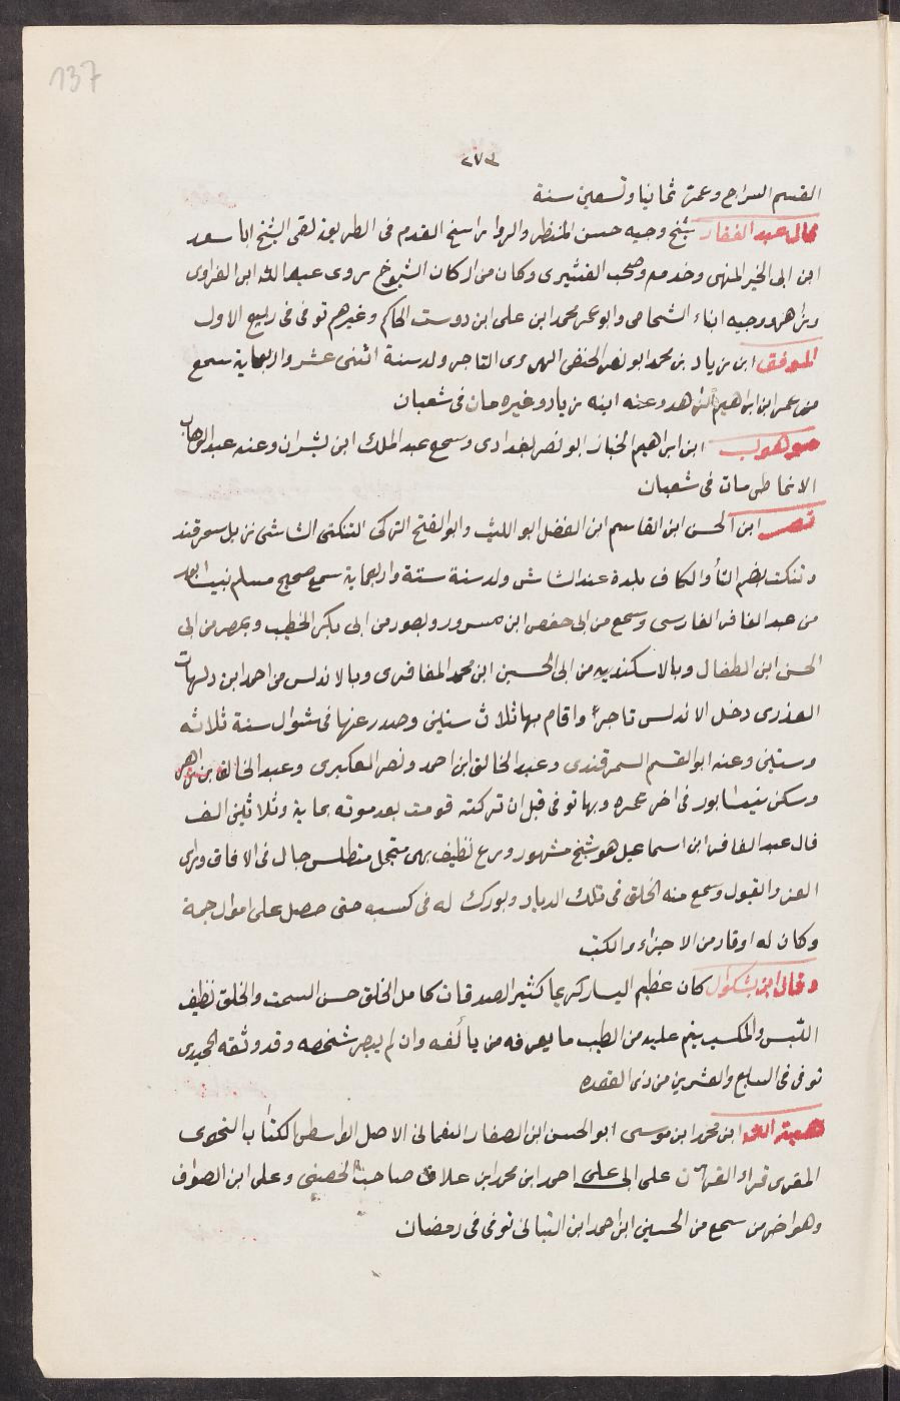 137
٢٧٣
القسم السراج وعمّر ثمانيا وتسعين سنة
قال عبد الغفار شيخ وجيه حسن المنظر والرواء راسخ القدم فى الطريقه لقى الشيخ ابا سعد
ابن ابى الخير المنهى وخدمه وصحب القشيرى وكان من اركان الشيوخ روى عبد الله ابن الفراوى
وزاهر ووجيه ابناء الشحامى وابو عمر محمد ابن على ابن دوست الحاكم وغيرهم توفى فى ربيع الاول
الموفق ابن زياد بن محمد ابو نصر الحنفى الهروى التاجر ولد سنة اثنى عشر واربعماية سمع
من عمر ابن ابراهيم الزاهد وعنه ابنه زياد وغيره مات فى شعبان
موهوب ابن ابراهيم الخباز ابو نصر بغدادى وسمع عبد الملك ابن بشران وعنه عبد الوهاب
الانماطى مات فى شعبان
نصر ابن الحسن ابن القاسم ابن الفضل ابو الليث وابو الفتح التركى التنكتى الشاشى نزيل سمرقند
وتنكت بضم التأ والكاف بلدة عند الشاش ولد سنة ستة واربعماية سمع صحيح مسلم نيسابور
من عبد الغافر الفارسى وسمع من ابى حفص ابن مسرور وبصور من ابى بكر الخطيب وبمصر من ابى
الحسن ابن الطفال وبالاسكندريه من ابى الحسين ابن محمد المغافرى وبالاندلس من احمد ابن دلهاث
العذرى دخل الاندلس تاجرًا واقام بها ثلاث سنين وصدر عنها فى شوال سنة ثلاثه
وستين وعنه ابو القسم السمرقندى وعبد الخالق ابن احمد ونصر العكبرى وعبد الخالق بن زاهر
وسكن نيسابور فى اخر عمره وبها توفى قبل ان تركته قومت بعد موته بماية وثلاثين الف
قال عبد الغافر ابن اسماعيل هو شيخ مشهور ورع نظيف بهى متجمل متطلس جال فى الافاق وراى
العز والقبول وسمع منه الخلق فى تلك الديار وبورك له فى كسبه حتى حصل على اموال جمة
وكان له اوقار من الاجزاء والكتب
وقال ابن بشكوال كان عظيم اليسار كريما كثير الصدقات كامل الخلق حسن السمت والخلق نظيف
اللبس والمكسب ينم عليه من الطيب ما يعرفه من يألفه وان لم يبصر شخصه وقد وثقه الحميدى
توفى فى السابع والعشرين من ذى القعده
هبة الله ابن محمد ابن موسى ابو الحسن ابن الصفار النعمانى الاصل الواسطى الكتاب النحوى
المقرى قراء القران على ابى على احمد ابن محمد ابن علاق صاحب الحصينى وعلى ابن الصواف
وهو اخر من سمع من الحسين ابن احمد ابن التبانى توفى فى رمضان